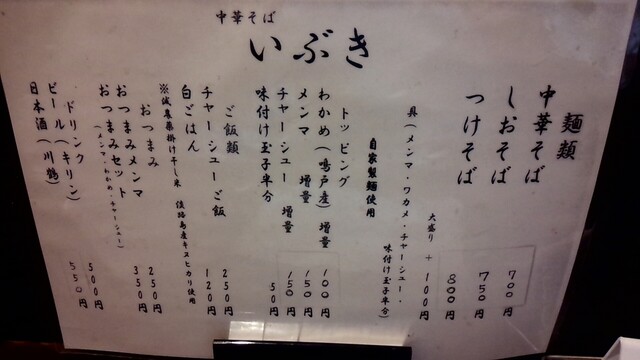 中華そば
いぶき
麺類
中華そば 700円
しおそば 750円
つけそば 800円
大盛り + 100円
具(メンマ・ワカメ・チャーシュー・味付け玉子半分)
自家製麺使用
トッピング
わかめ(鳴戸産)増量 100円
メンマ 増量 150円
チャーシュー 増量 150円
味付け玉子半分 50円
ご飯類
チャーシューご飯 250円
白ごはん 120円
※減農薬掛け干し米 淡路島産キヌヒカリ使用
おつまみ
おつまみメンマ 250円
おつまみセット 350円
(メンマ・わかめ・チャーシュー)
ドリンク
ビール(キリン) 500円
日本酒(川鶴) 550円